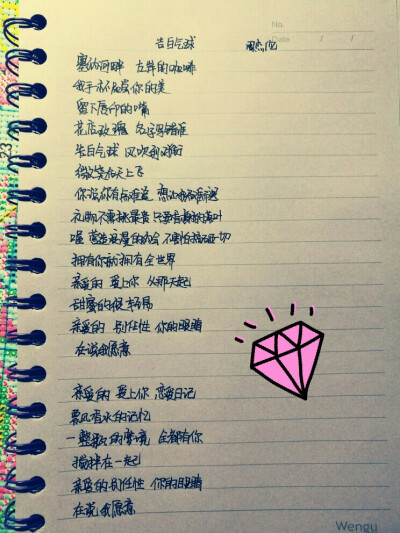 No.
Date / /
告白气球 周杰伦
塞纳河畔 左岸的咖啡
我手一杯 品尝你的美
留下唇印的嘴
花店玫瑰 名字写错谁
告白气球 风吹到对街
微笑在天上飞
你说你有点难追 想让我知难而退
礼物不需挑最贵 只要香榭的落叶
喔 营造浪漫的约会 不害怕搞砸一切
拥有你就拥有全世界
亲爱的 爱上你 从那天起
甜蜜的很轻易
亲爱的 别任性 你的眼睛
在说我愿意
亲爱的 爱上你 恋爱日记
飘香水的记忆
一整瓶的梦境 全都有你
搅拌在一起
亲爱的别任性 你的眼睛
在说我愿意
Wengu